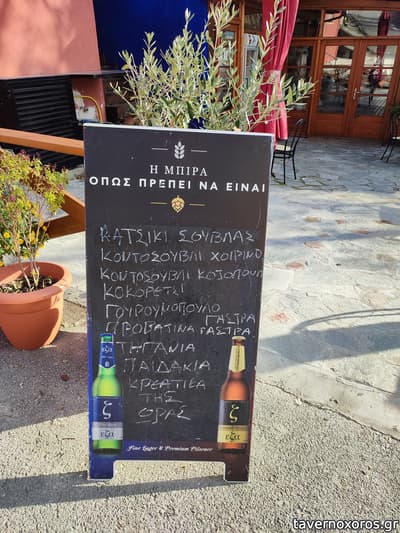 Η ΜΠΙΡΑ
ΟΠΩΣ ΠΡΕΠΕΙ ΝΑ ΕΙΝΑΙ
ΚΑΤΣΙΚΙ ΣΟΥΒΛΑΣ
ΚΟΝΤΟΣΟΥΒΛΙ ΧΟΙΡΙΝΟ
ΚΟΝΤΟΣΟΥΒΛΙ ΚΟΤΟΠΟΥΛ
ΚΟΚΟΡΕΤΣΙ
ΓΟΥΡΟΥΝΟΠΟΥΛΟ
ΓΑΣΤΡΑ
ΠΡΟΒΑΤΙΝΑ ΓΑΣΤΡΑ
ΤΗΓΑΝΙΑ
ΠΑΙΔΑΚΙΑ
ΚΡΕΑΤΙΚΑ
ΤΗΣ
ΩΡΑΣ
εζα
ζ
εζα
ζ
εζα
Fine Lager & Premium Pilsener
tavernoxoros.gr